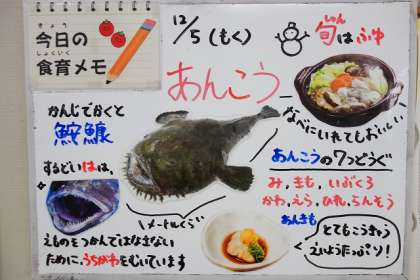 きょう
今日の
しょくいく
食育メモ
12/5(もく)
しゅん
旬はふゆ
あんこう
かんじでかくと
鮟鱇
するどいはは、
1メートルくらい
えものをつかんではなさない
ために、うちがわをむいています
なべにいれてもおいしい
あんこうの7つどうぐ
み、きも、いぶくろ
かわ、えら、ひれ、らんそう
あんきも
とてもこうきゅう
えいようたっぷり!